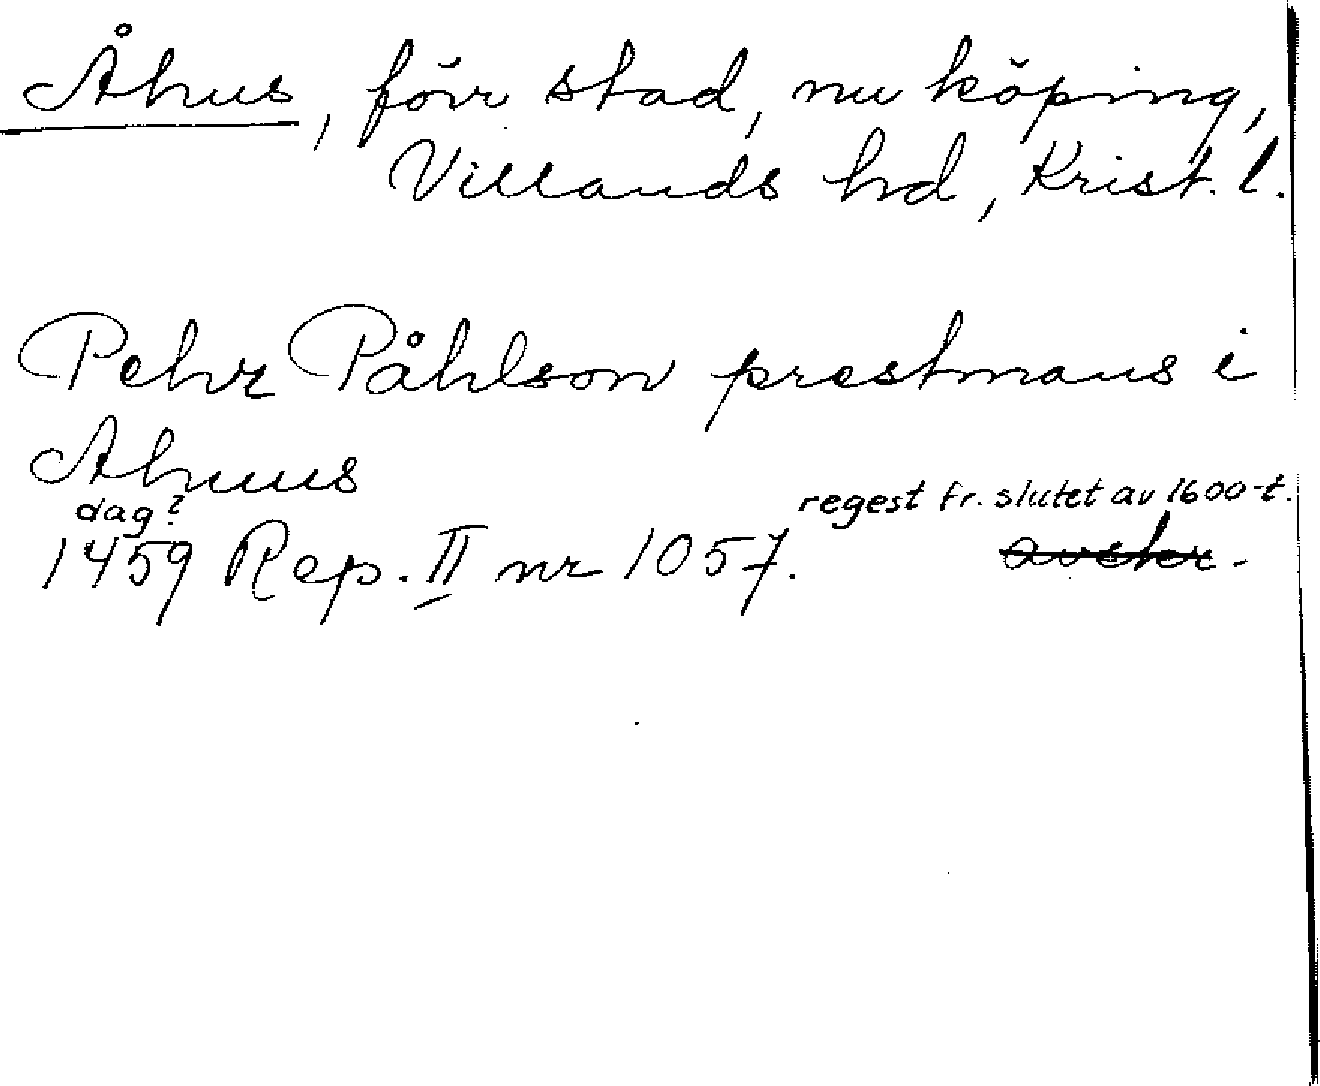 Åhus, förr stad, nu köping,
Villands hd, Krist. l.
Pehr Påhlson prestmans i
Ahuus
dag? regest fr. slutet av 1600-t.
1459 Rep. II nr 1057. avskr.